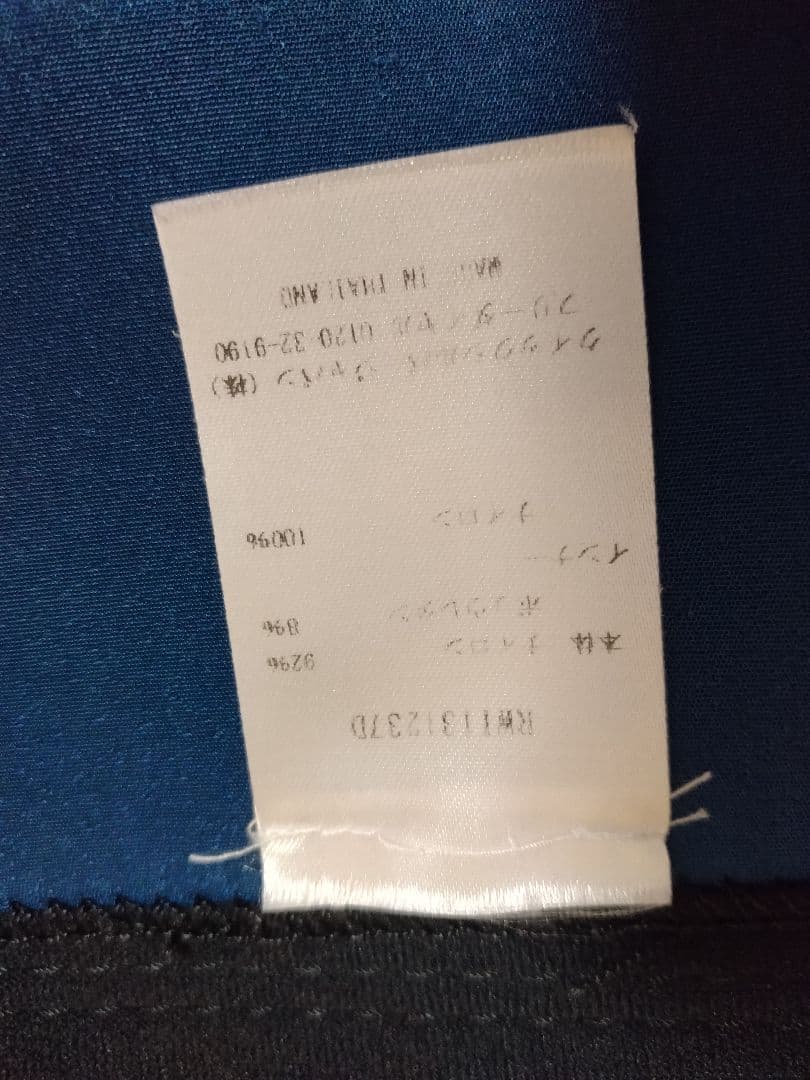 本体 ナイロン 92%
ポリウレタン 8%
インナー
ナイロン 100%
クイックシルバー ジャパン (株)
フリーダイヤル 0120-32-9190
MADE IN THAILAND